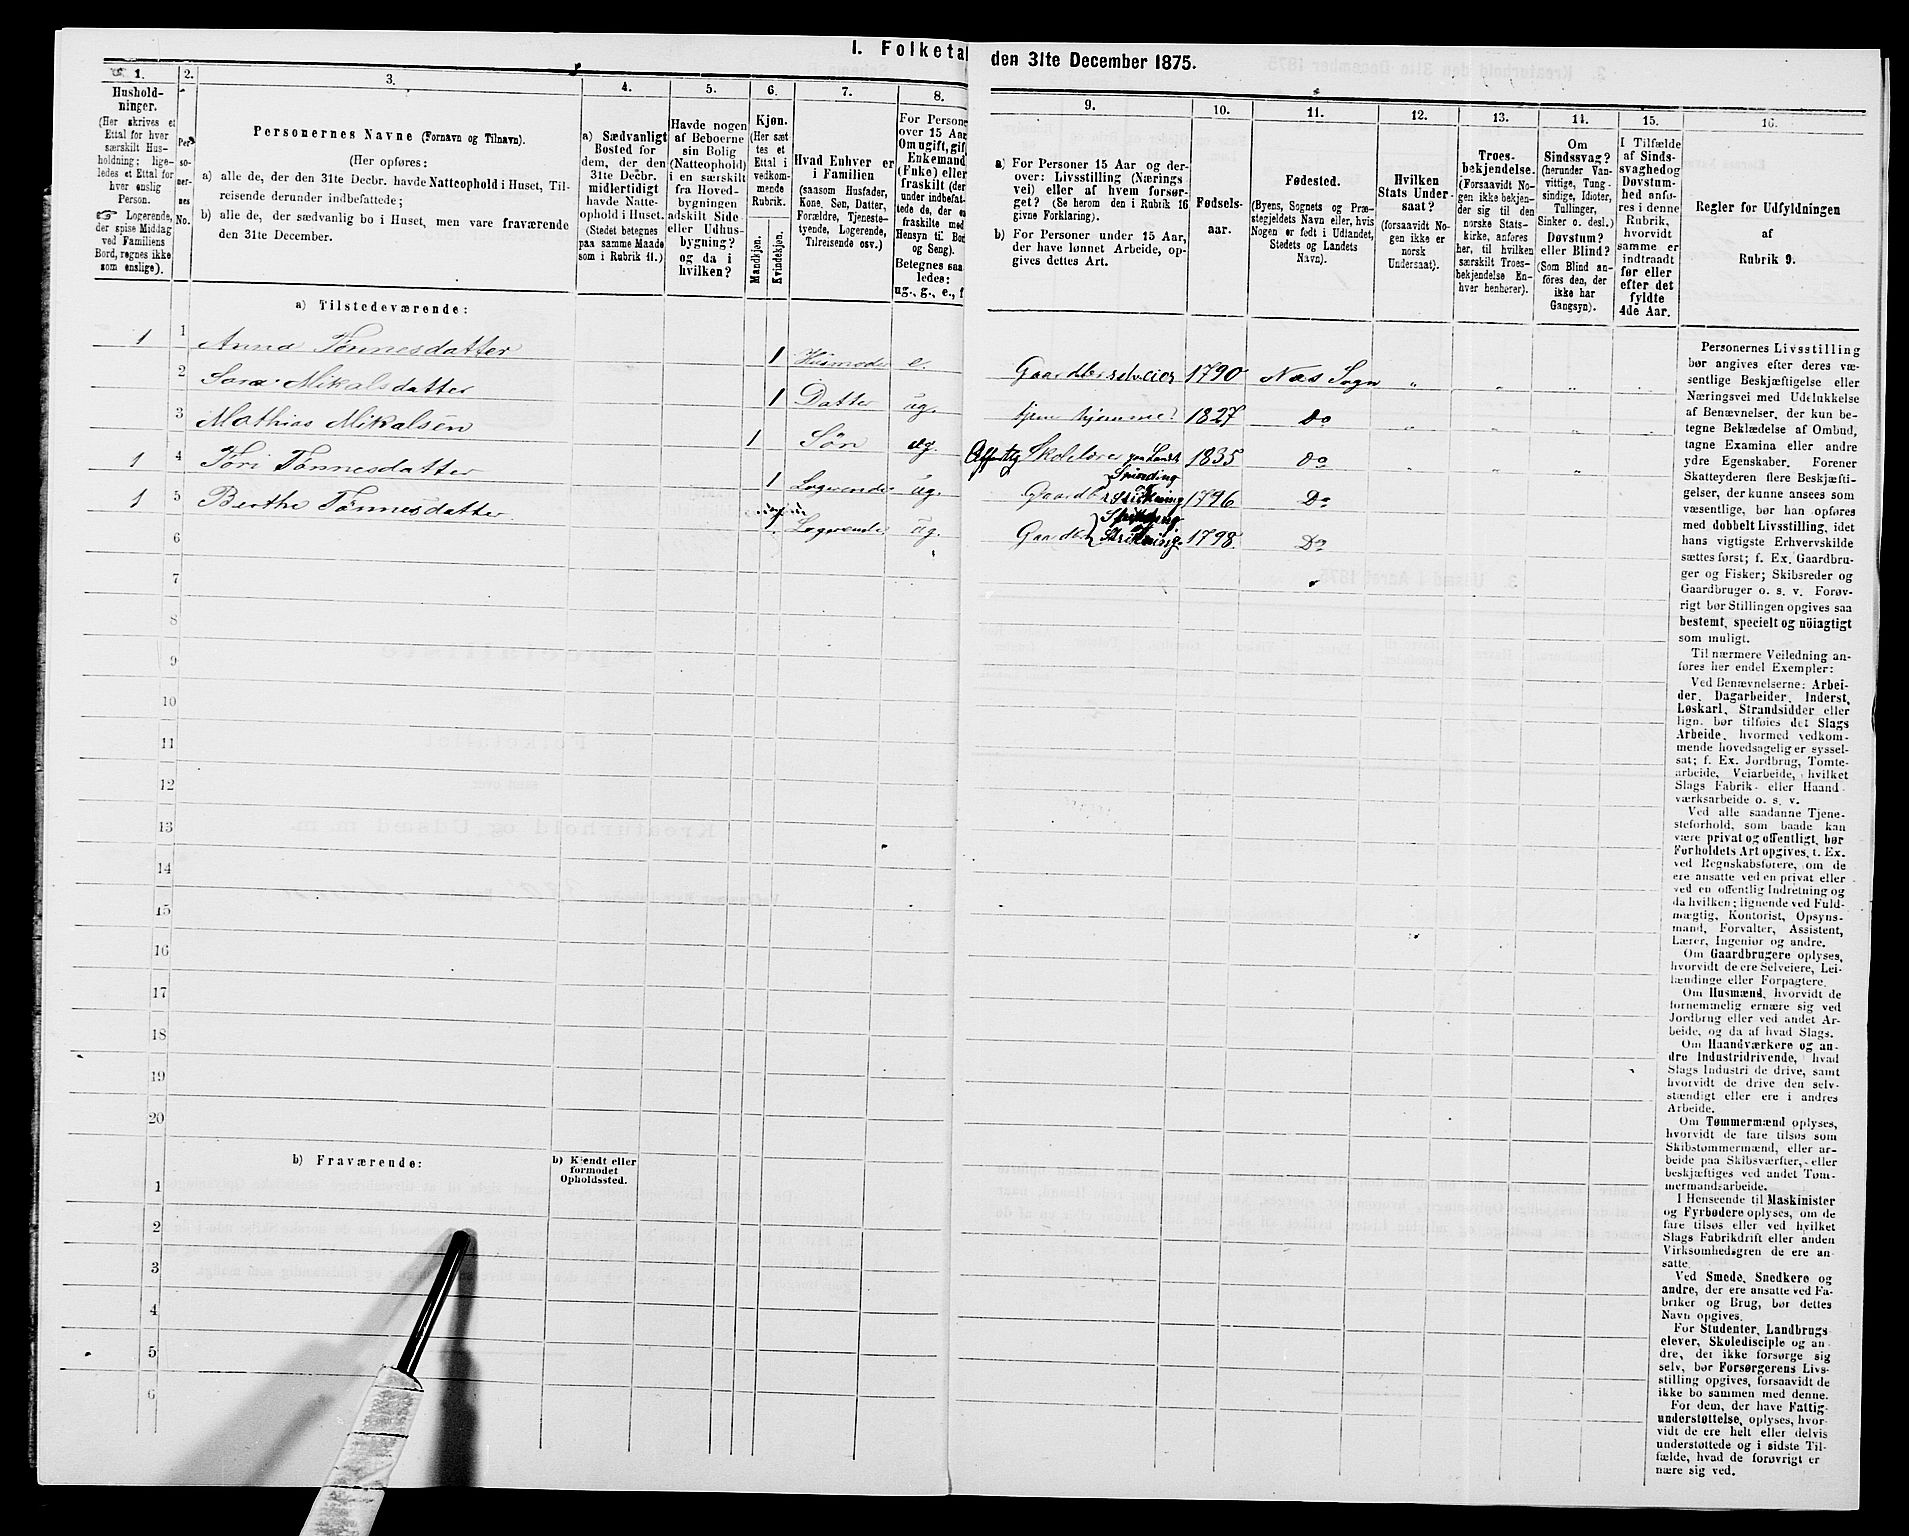 I. Folketa
den 31te December 1875.
1.
2.
3.
4.
5.
6.
7.
8.
Hushold-
ninger.
(Her skrives et
Ettal for hver
særskilt Hus-
holdning; lige-
ledes et Ettal for
hver enslig
Person.
☞ Logerende,
der spise Middag
ved Familiens
Bord, regnes ikke
som enslige).
Per-
so-
ner-
nes
No.
Personernes Navne (Fornavn og Tilnavn).
(Her opføres:
a) alle de, der den 31te Decbr. havde Natteophold i Huset, Til-
reisende derunder indbefattede;
b) alle de, der sædvanlig bo i Huset, men vare fraværende
den 31te December.
a) Sædvanligt
Bosted for
dem, der den
31te Decbr.
midlertidigt
havde Natte-
ophold i Huset.
(Stedet betegnes
paa samme Maade
som i Rubrik 11.)
Havde nogen
af Beboerne
sin Bolig
(Natteophold)
i en særskilt
fra Hoved-
bygningen
adskilt Side-
eller Udhus-
bygning?
og da i
hvilken?
Kjøn.
(Her sæt-
tes et
Ettal i
vedkom-
mende
Rubrik.
Mandkjøn.
Kvindekjøn.
Hvad Enhver er
i Familien
(saasom Husfader,
Kone, Søn, Datter,
Forældre, Tjeneste-
tyende, Logerende,
Tilreisende osv.)
For Persone
over 15 Aar
Om ugift, gift
Enkemand
(Enke) eller
fraskilt (der
under indbefat
tede de, der e
fraskilte med
Hensyn til Bor
og Seng).
Betegnes saa
ledes:
ug., g., e., f
9.
10.
11.
12.
13.
14.
15.
16.
a) For Personer 15 Aar og der-
over: Livsstilling (Nærings
vei) eller af hvem forsør-
get? (Se herom den i Rubrik 16
givne Forklaring).
b) For Personer under 15 Aar,
der have lønnet Arbeide, op-
gives dettes Art.
Fødsels-
aar.
Fødested.
(Byens, Sognets og Præ-
stegjeldets Navn eller, hvis
Nogen er født i Udlandet,
Stedets og Landets
Navn).
Hvilken
Stats Under-
saat?
(forsaavidt No-
gen ikke er
norsk
Undersaat).
Troes-
bekjendelse.
(Forsaavidt No-
gen ikke bekjen-
der sig til den
norske Stats-
kirke, anføres
her, til hvilken
særskilt Troes-
bekjendelse En-
hver henhører).
Om
Sindssvag?
(herunder Van-
vittige, Tung-
sindige, Idioter,
Tullinger,
Sinker o. desl.)
Døvstum?
eller Blind?
(Som Blind an-
føres den, der
ikke har
Gangsyn).
I Tilfælde
af Sinds-
svaghed og
Døvstum-
hed anfø-
res i denne
Rubrik,
hvorvidt
samme er
indtraadt
før eller
efter det
fyldte
4de Aar.
Regler for Udfyldningen
af
Rubrik 9.
a) Tilstedeværende:
1 1 Anna Tønnesdatter 1 Husmoder e. Gaardbr selveier 1790 Næs Sogn „ „ „ „
2 Sara Mikalsdatter 1 Datter ug. tjener hjemme 1827 Do „ „ „ „
3 Mathias Mikalsen 1 Søn ug Skolelærer paa Landet 1835 do „ „ „
1 4 Tøri Tønnesdatter 1 Logerende ug. Gaardbr Spinding og Strikning 1796 Do
1 5 Berthe Tønnesdatter 1 Logerende ug. Gaardbr Spinding og Strikning. 1798. Do
6
7
8
9
10
11
12
13
14
15
16
17
18
19
20
b) Fraværende:
b) Kjendt eller
formodet
Opholdssted.
1
2
3
4
5
6
Personernes Livsstilling
bør angives efter deres væ-
sentlige Beskjæftigelse eller
Næringsvei med Udelukkelse
af Benævnelser, der kun be-
tegne Beklædelse af Ombud,
tagne Examina eller andre
ydre Egenskaber. Forener
Skatteyderen flere Beskjæfti-
gelser, der kunne ansees som
væsentlige, bør han opføres
med dobbelt Livsstilling, idet
hans vigtigste Erhvervskilde
sættes først; f. Ex. Gaardbru-
ger og Fisker; Skibsreder og
Gaardbruger o. s. v. Forøv-
rigt bør Stillingen opgives saa
bestemt, specielt og nöiagtigt
som muligt.
Til nærmere Veiledning an-
føres her endel Exempler:
Ved Benævnelserne: Arbei-
der, Dagarbeider, Inderst,
Løskarl, Strandsidder eller
lign. bør tilføies det Slags
Arbeide, hvormed vedkom-
mende hovedsagelig er syssel-
sat; f. Ex. Jordbrug, Tomte-
arbeide, Veiarbeide, hvilket
Slags Fabrik- eller Haand-
værksarbeide o. s. v.
Ved alle saadanne Tjene-
steforhold, som baade kan
være privat og offentligt, bør
Forholdets Art opgives, t. Ex.
ved Regnskabsførere, om de
ere ansatte ved en privat eller
ved en offentlig Indretning og
da hvilken; lignende ved Fuld-
mægtig, Kontorist, Opsyns-
mand, Forvalter, Assistent,
Lærer, Ingeniør og andre.
Om Gaardbrugere oplyses,
hvorvidt de ere Selveiere, Lei-
lændinge eller Forpagtere.
Om Husmænd, hvorvidt de
fornemmelig ernære sig ved
Jordbrug eller ved andet Ar-
beide, og da af hvad Slags.
Om Haandværkere og an-
dre Industridrivende, hvad
Slags Industri de drive, samt
hvorvidt de drive den selv-
stændigt eller ere i andres
Arbeide.
Om Tømmermænd oplyses,
hvorvidt de fare tilsøs som
Skibstømmermænd, eller ar-
beide paa Skibsværfter, eller
beskjæftiges ved andet Tøm-
mermandsarbeide.
I Henseende til Maskinister
og Fyrbødere oplyses, om de
fare tilsøs eller ved hvilket
Slags Fabrikdrift eller anden
Virksomhedsgren de ere an-
satte.
Ved Smede, Snedkere og
andre, der ere ansatte ved Fa-
briker og Brug, bør dettes
Navn opgives.
For Studenter, Landbrugs-
elever, Skoledisciple og an-
dre, der ikke forsørge sig
selv, bør Forsørgerens Livs-
stilling opgives, forsaavidt de
ikke bo sammen med denne.
For dem, der have Fattig-
understøttelse, oplyses, hvor-
vidt de ere helt eller delvis
understøttede og i sidste Til-
fælde, hvad de forøvrigt er
nære sig ved.